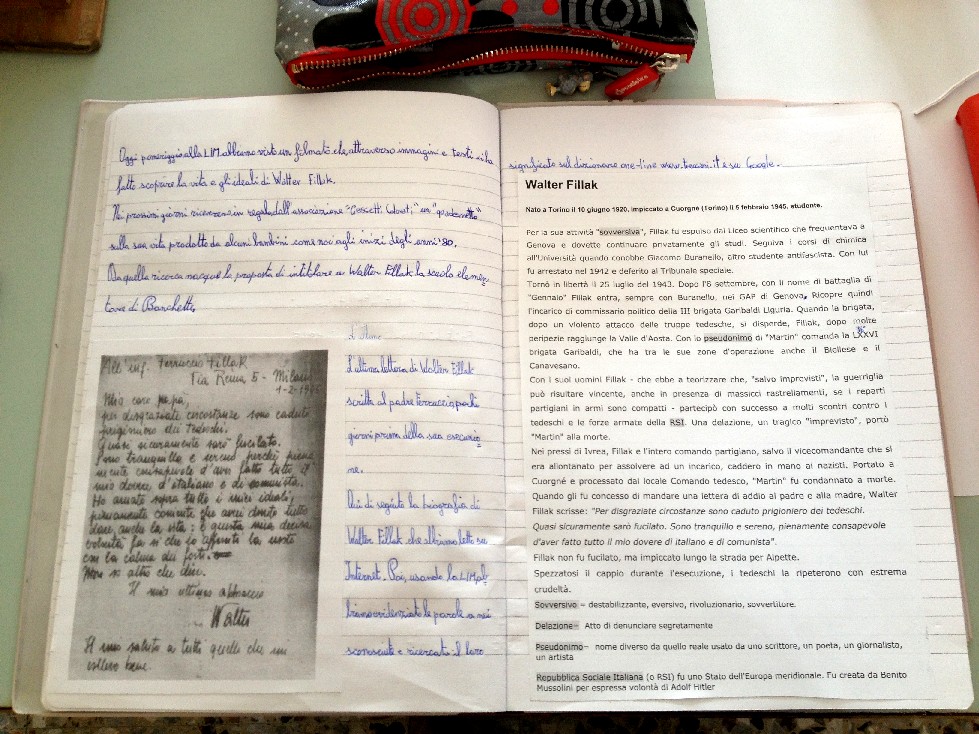 Oggi pomeriggio alla LIM abbiamo visto un filmato che attraverso immagini e testi ci ha
fatto scoprire la vita e gli ideali di Walter Fillak.
Nei prossimi giorni riceveremo in regalo dall'associazione un "quadernetto"
sulla sua vita prodotto da alcuni bambini come noi agli inizi degli anni '80.
Da quella ricerca nacque la proposta di intitolare a Walter Fillak la scuola elemen
tare di Banchette.
All' ing. Ferruccio Fillak
Via Roma 5 - Milano
1-2-19
Mio caro papà,
per disgraziate circostanze sono caduto
prigioniero dei tedeschi.
Quasi sicuramente sarò fucilato.
Sono tranquillo e sereno perchè piena
mente consapevole d'aver fatto tutto il
mio dovere d'italiano e di comunista.
Ho amato sopra tutto i miei ideali,
pienamente cosciente che avrei dovuto tutto
dare, anche la vita; e questa mia decisa
volontà fa sì che io affronti la morte
con la calma dei forti.
Non so altro che dire.
Il mio ultimo abbraccio
Walter
Il mio saluto a tutti quelli che mi
volevano bene.
L'ultima
L'ultima lettera di Walter Fillak
scritta al padre Ferruccio pochi
giorni prima della sua esecuzio
ne.
Qui di seguito la biografia di
Walter Fillak che abbiamo letto su
Internet. Poi, usando la LIM, ab
biamo evidenziato le parole a noi
sconosciute e ricercato il loro
significato sul dizionario on-line www.treccani.it e su Google.
Walter Fillak
Nato a Torino il 10 giugno 1920, impiccato a Cuorgnè (Torino) il 5 febbraio 1945, studente.
Per la sua attività "sovversiva", Fillak fu espulso dal Liceo scientifico che frequentava a
Genova e dovette continuare privatamente gli studi. Seguiva i corsi di chimica
all'Università quando conobbe Giacomo Buranello, altro studente antifascista. Con lui
fu arrestato nel 1942 e deferito al Tribunale speciale.
Tornò in libertà il 25 luglio del 1943. Dopo l'8 settembre, con il nome di battaglia di
"Gennaio" Fillak entra, sempre con Buranello, nei GAP di Genova. Ricopre quindi
l'incarico di commissario politico della III brigata Garibaldi Liguria. Quando la brigata,
dopo un violento attacco delle truppe tedesche, si disperde, Fillak, dopo molte
peripezie raggiunge la Valle d'Aosta. Con lo pseudonimo di "Martin" comanda la LXXVI
brigata Garibaldi, che ha tra le sue zone d'operazione anche il Biellese e il
Canavesano.
Con i suoi uomini Fillak - che ebbe a teorizzare che, "salvo imprevisti", la guerriglia
può risultare vincente, anche in presenza di massicci rastrellamenti, se i reparti
partigiani in armi sono compatti - partecipò con successo a molti scontri contro i
tedeschi e le forze armate della RSI. Una delazione, un tragico "imprevisto", portò
"Martin" alla morte.
Nei pressi di Ivrea, Fillak e l'intero comando partigiano, salvo il vicecomandante che si
era allontanato per assolvere ad un incarico, caddero in mano ai nazisti. Portato a
Cuorgné e processato dal locale Comando tedesco, "Martin" fu condannato a morte.
Quando gli fu concesso di mandare una lettera di addio al padre e alla madre, Walter
Fillak scrisse: "Per disgraziate circostanze sono caduto prigioniero dei tedeschi.
Quasi sicuramente sarò fucilato. Sono tranquillo e sereno, pienamente consapevole
d'aver fatto tutto il mio dovere di italiano e di comunista".
Fillak non fu fucilato, ma impiccato lungo la strada per Alpette.
Spezzatosi il cappio durante l'esecuzione, i tedeschi la ripeterono con estrema
crudeltà.
Sovversivo = destabilizzante, eversivo, rivoluzionario, sovvertitore.
Delazione= Atto di denunciare segretamente
Pseudonimo= nome diverso da quello reale usato da uno scrittore, un poeta, un giornalista,
un artista
Repubblica Sociale Italiana (o RSI) fu uno Stato dell'Europa meridionale. Fu creata da Benito
Mussolini per espressa volontà di Adolf Hitler